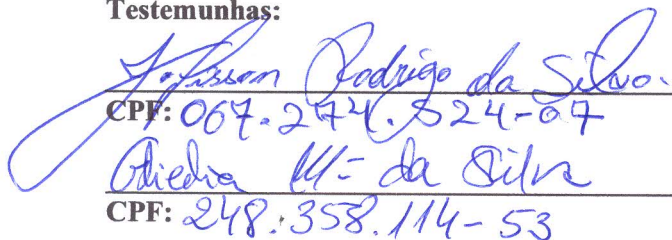 Testemunhas:
Rodrigo da Silva.
CPF: 067.274.524-07
Mª da Silva
CPF: 248.358.114-53